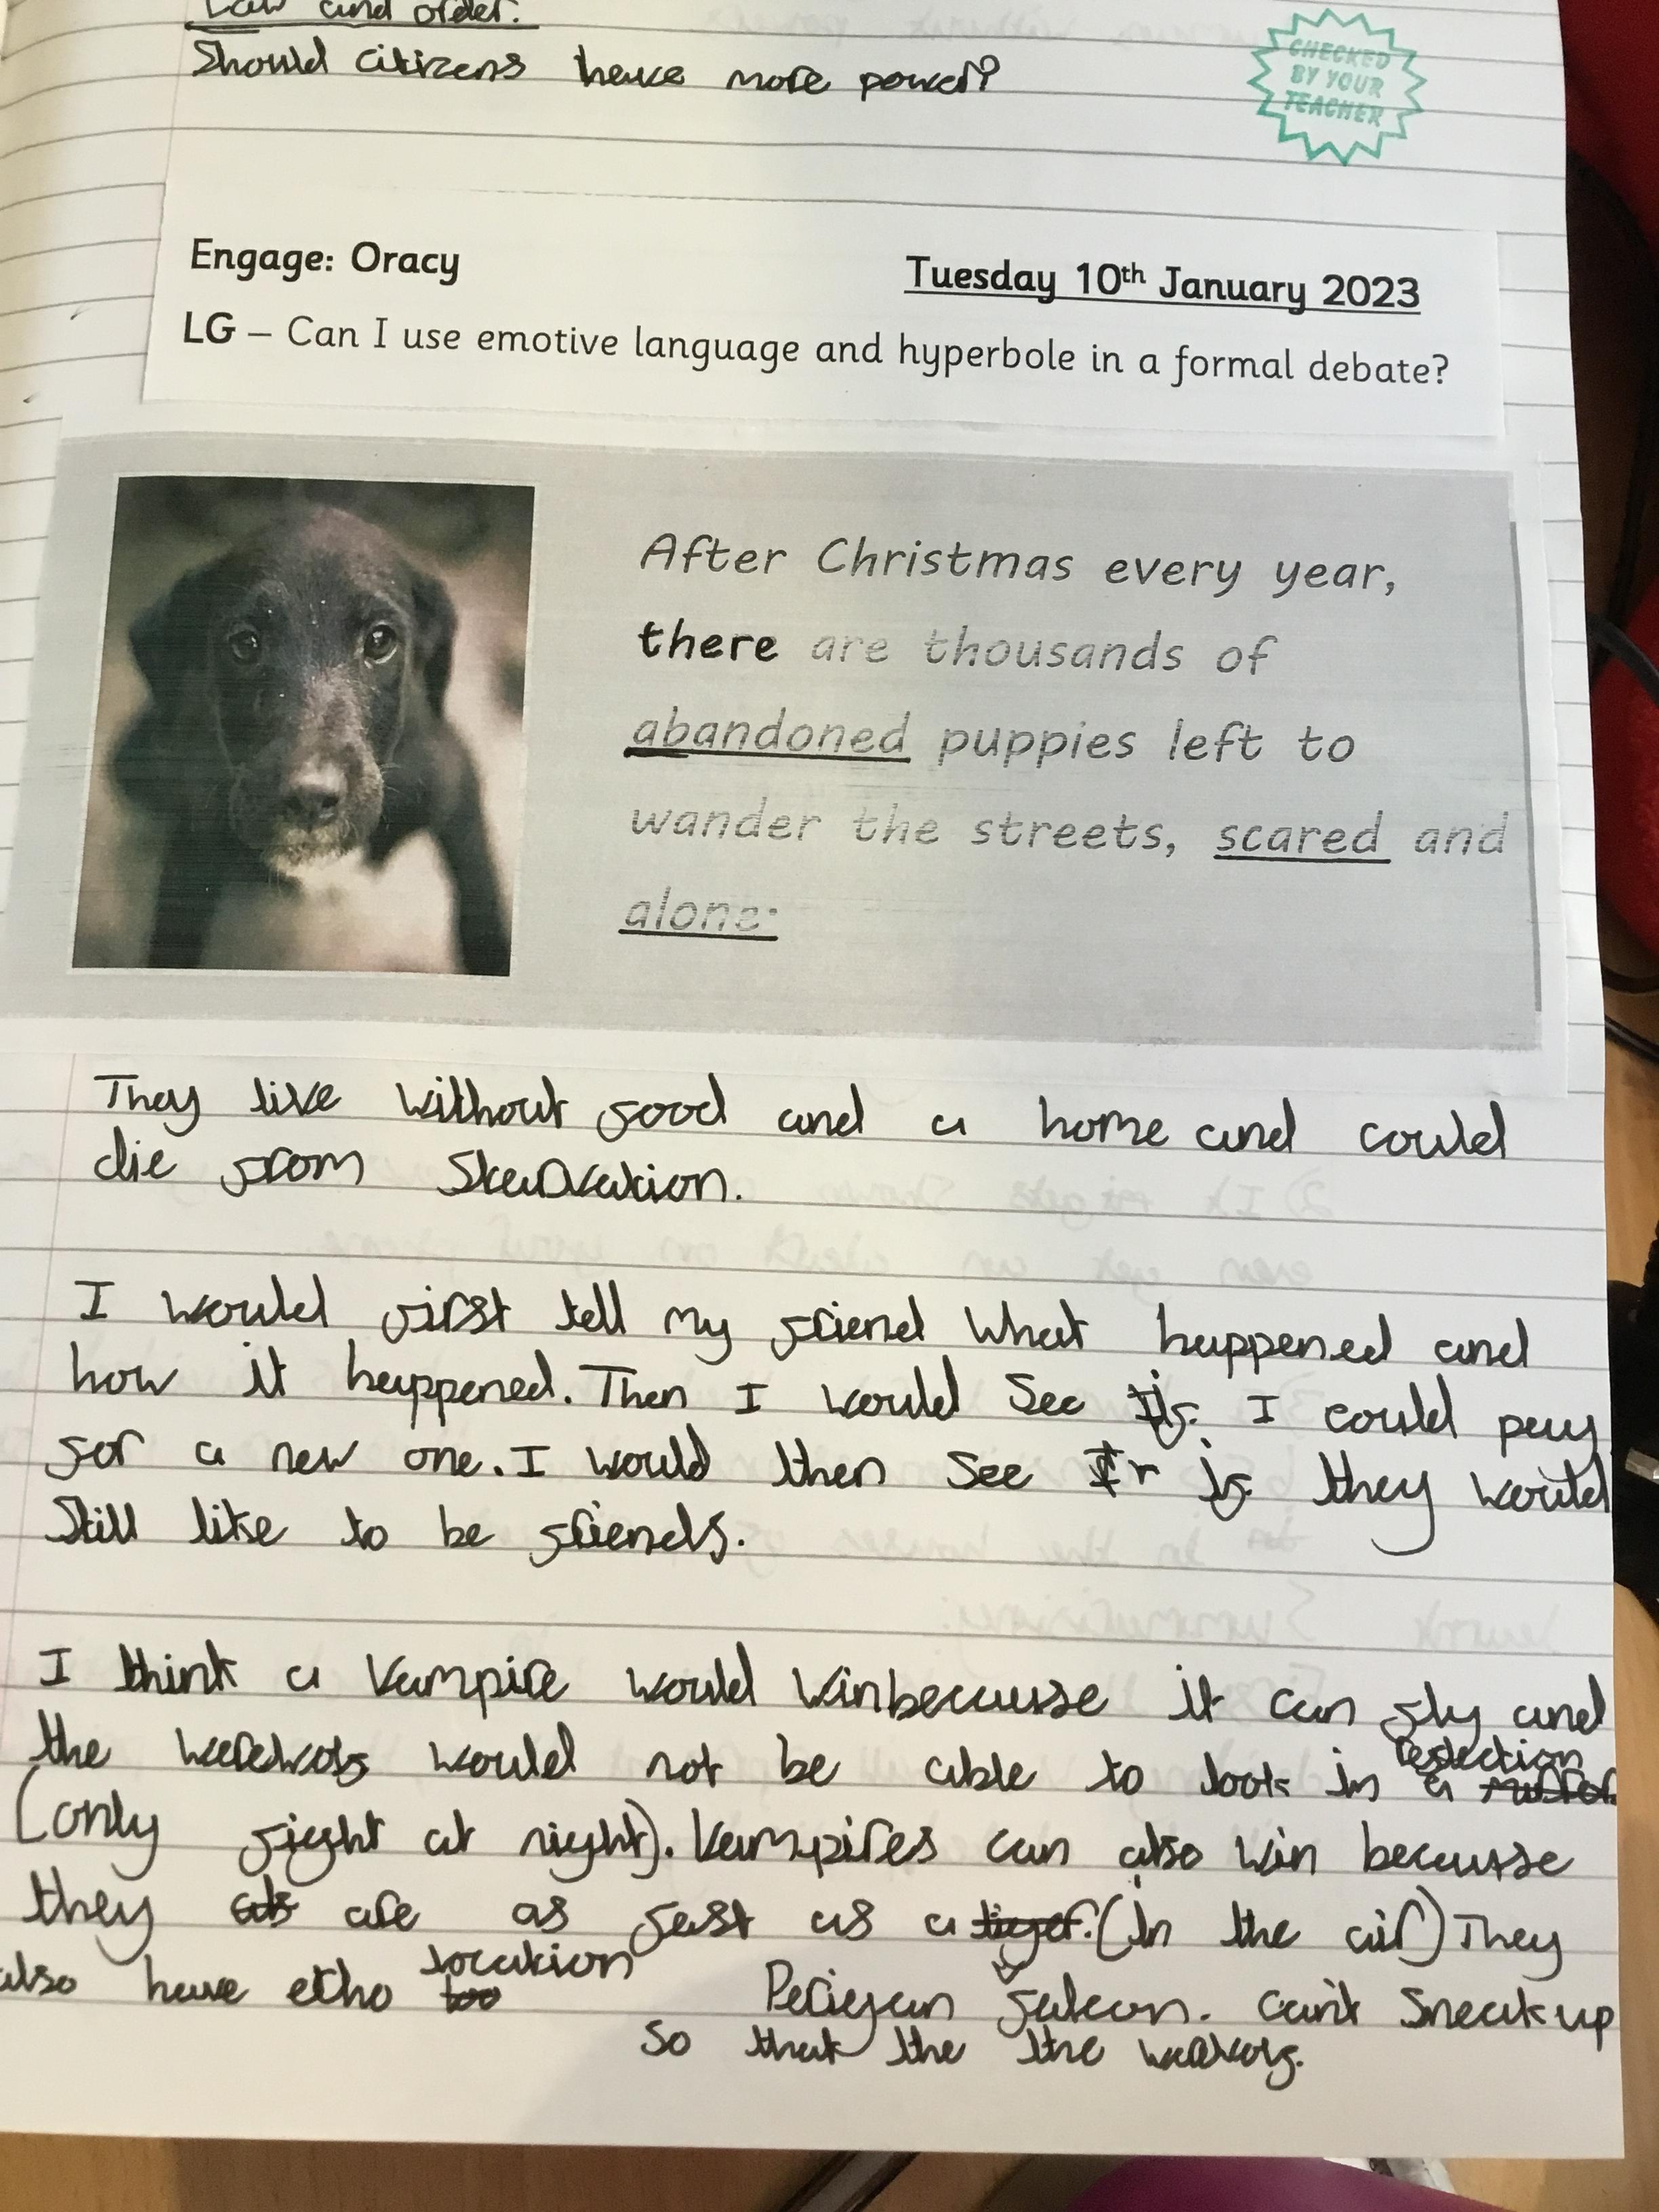 Law and order.
Should citizens have more power?
CHECKED
BY YOUR
TEACHER
Engage: Oracy
Tuesday 10th January 2023
LG – Can I use emotive language and hyperbole in a formal debate?
After Christmas every year,
there are thousands of
abandoned puppies left to
wander the streets, scared and
alone.
They live without food and a home and could
die from starvation.
I would first tell my friend what happened and
how it happened. Then I would see if I could pay
for a new one. I would then see if they would
still like to be friends.
I think a vampire would win because it can fly and
the werewolf would not be able to look in a reflection
(only fight at night). Vampires can also win because
they are as fast as a tiger. (in the air) They
also have etho location
Periegan falcon. can't sneak up
so that the the